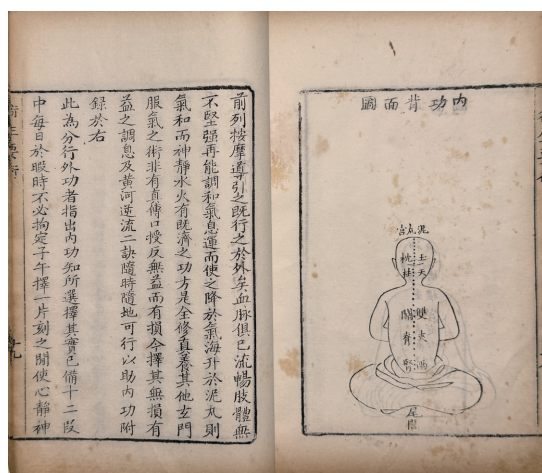 內功背面圖
泥丸宮
玉枕
天柱
雙關
夾脊
兩腎
尾閭
前列按摩導引之既行之於外矣血脉俱已流暢肢體無
不堅强再能調和氣息運而使之降於氣海升於泥丸則
氣和而神靜水火有既濟之功方是全修真養其他玄門
服氣之術非有真傳口授反無益而有損今擇其無損有
益之調息及黃河逆流二訣隨時隨地可行以助內功附
錄於右
此為分行外功者指出內功知所選擇其實已備十二段
中每日於暇時不必拘定子午擇一片刻之閒使心靜神
十九